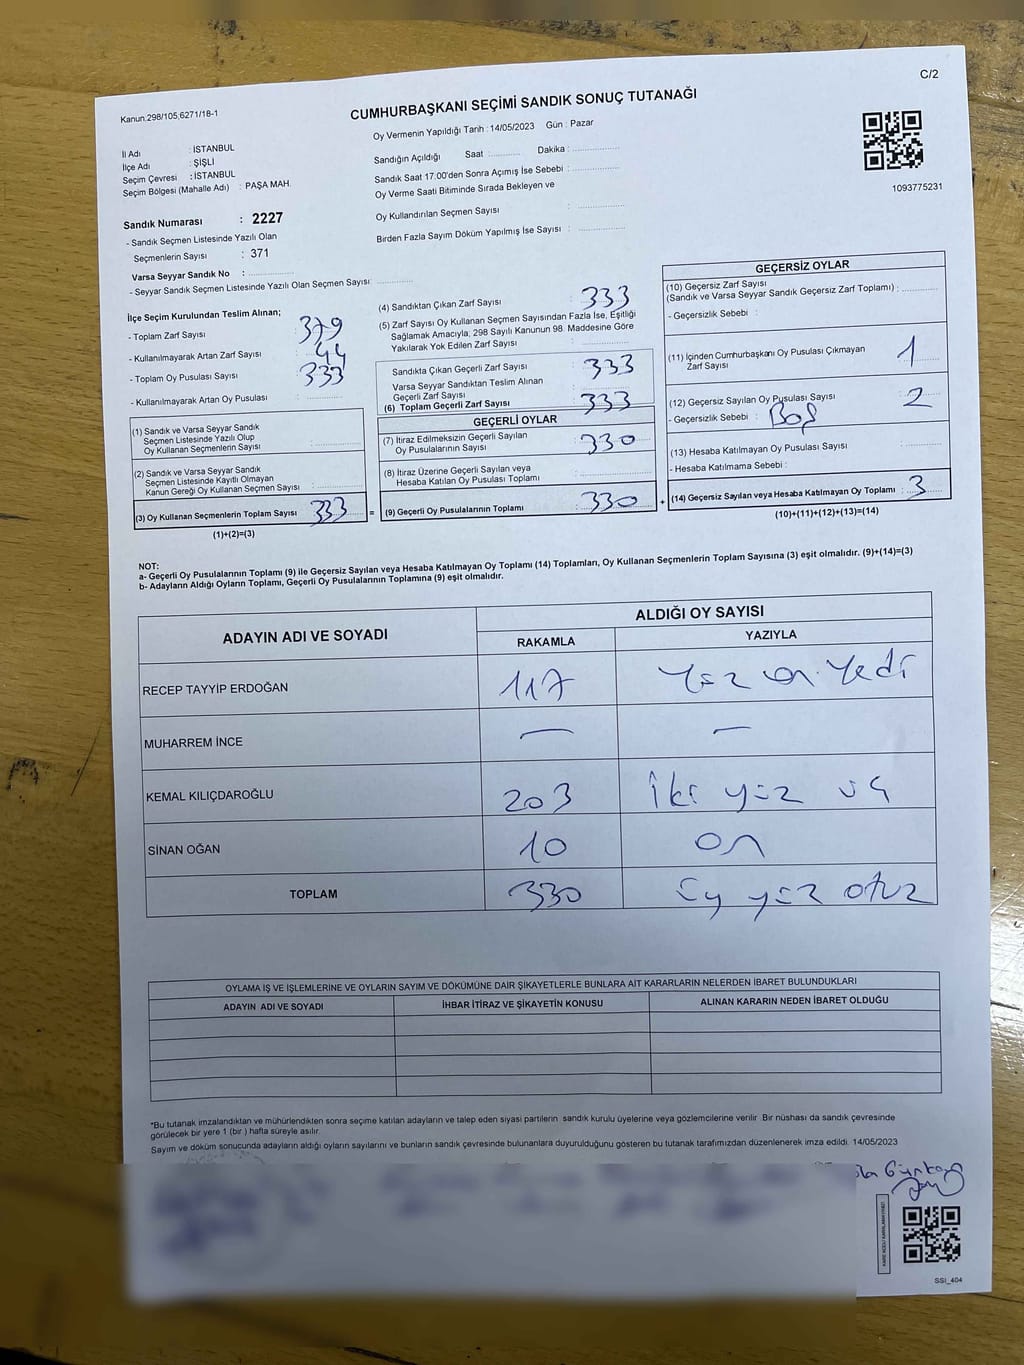 C/2
Kanun.298/105,6271/18-1
CUMHURBAŞKANI SEÇİMİ SANDIK SONUÇ TUTANAĞI
Oy Vermenin Yapıldığı Tarih : 14/05/2023 Gün : Pazar
İl Adı : İSTANBUL
İlçe Adı : ŞİŞLİ
Seçim Çevresi : İSTANBUL
Seçim Bölgesi (Mahalle Adı) : PAŞA MAH.
Sandığın Açıldığı Saat : Dakika :
Sandık Saat 17:00'den Sonra Açılmış İse Sebebi :
Oy Verme Saati Bitiminde Sırada Bekleyen ve
Oy Kullandırılan Seçmen Sayısı :
Birden Fazla Sayım Döküm Yapılmış İse Sayısı :
1093775231
Sandık Numarası : 2227
- Sandık Seçmen Listesinde Yazılı Olan
Seçmenlerin Sayısı : 371
Varsa Seyyar Sandık No :
- Seyyar Sandık Seçmen Listesinde Yazılı Olan Seçmen Sayısı :
İlçe Seçim Kurulundan Teslim Alınan;
- Toplam Zarf Sayısı : 379
- Kullanılmayarak Artan Zarf Sayısı : 44
- Toplam Oy Pusulası Sayısı : 333
- Kullanılmayarak Artan Oy Pusulası :
(1) Sandık ve Varsa Seyyar Sandık
Seçmen Listesinde Yazılı Olup
Oy Kullanan Seçmenlerin Sayısı :
(2) Sandık ve Varsa Seyyar Sandık
Seçmen Listesinde Kayıtlı Olmayan
Kanun Gereği Oy Kullanan Seçmen Sayısı :
(3) Oy Kullanan Seçmenlerin Toplam Sayısı : 333
(1)+(2)=(3)
=
(4) Sandıktan Çıkan Zarf Sayısı : 333
(5) Zarf Sayısı Oy Kullanan Seçmen Sayısından Fazla İse, Eşitliği
Sağlamak Amacıyla; 298 Sayılı Kanunun 98. Maddesine Göre
Yakılarak Yok Edilen Zarf Sayısı :
Sandıkta Çıkan Geçerli Zarf Sayısı : 333
Varsa Seyyar Sandıktan Teslim Alınan
Geçerli Zarf Sayısı :
(6) Toplam Geçerli Zarf Sayısı : 333
GEÇERLİ OYLAR
(7) İtiraz Edilmeksizin Geçerli Sayılan
Oy Pusulalarının Sayısı : 330
(8) İtiraz Üzerine Geçerli Sayılan veya
Hesaba Katılan Oy Pusulası Toplamı :
(9) Geçerli Oy Pusulalarının Toplamı : 330
+
GEÇERSİZ OYLAR
(10) Geçersiz Zarf Sayısı
(Sandık ve Varsa Seyyar Sandık Geçersiz Zarf Toplamı) :
- Geçersizlik Sebebi :
(11) İçinden Cumhurbaşkanı Oy Pusulası Çıkmayan
Zarf Sayısı : 1
(12) Geçersiz Sayılan Oy Pusulası Sayısı : 2
- Geçersizlik Sebebi : Boş
(13) Hesaba Katılmayan Oy Pusulası Sayısı :
- Hesaba Katılmama Sebebi :
(14) Geçersiz Sayılan veya Hesaba Katılmayan Oy Toplamı : 3
(10)+(11)+(12)+(13)=(14)
NOT:
a- Geçerli Oy Pusulalarının Toplamı (9) ile Geçersiz Sayılan veya Hesaba Katılmayan Oy Toplamı (14) Toplamları, Oy Kullanan Seçmenlerin Toplam Sayısına (3) eşit olmalıdır. (9)+(14)=(3)
b- Adayların Aldığı Oyların Toplamı, Geçerli Oy Pusulalarının Toplamına (9) eşit olmalıdır.
ADAYIN ADI VE SOYADI
ALDIĞI OY SAYISI
RAKAMLA YAZIYLA
RECEP TAYYİP ERDOĞAN 117 Yüz on Yedi
MUHARREM İNCE — —
KEMAL KILIÇDAROĞLU 203 İki yüz üç
SİNAN OĞAN 10 on
TOPLAM 330 Üç yüz otuz
OYLAMA İŞ VE İŞLEMLERİNE VE OYLARIN SAYIM VE DÖKÜMÜNE DAİR ŞİKAYETLERLE BUNLARA AİT KARARLARIN NELERDEN İBARET BULUNDUKLARI
ADAYIN ADI VE SOYADI İHBAR İTİRAZ VE ŞİKAYETİN KONUSU ALINAN KARARIN NEDEN İBARET OLDUĞU
*Bu tutanak imzalandıktan ve mühürlendikten sonra seçime katılan adayların ve talep eden siyasi partilerin sandık kurulu üyelerine veya gözlemcilerine verilir. Bir nüshası da sandık çevresinde
görülecek bir yere 1 (bir ) hafta süreyle asılır.
Sayım ve döküm sonucunda adayların aldığı oyların sayılarını ve bunların sandık çevresinde bulunanlara duyurulduğunu gösteren bu tutanak tarafımızdan düzenlenerek imza edildi. 14/05/2023
SSI_404